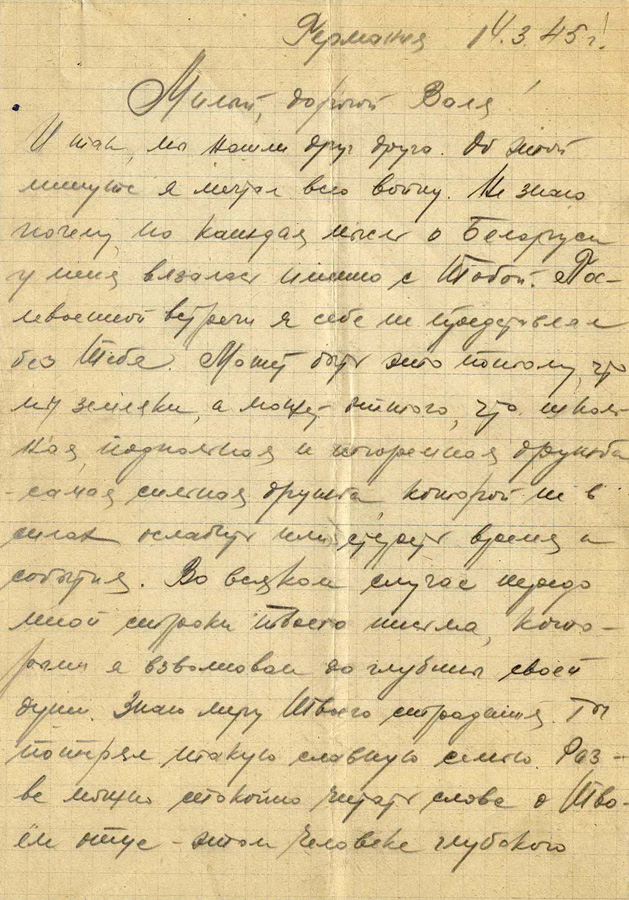 Германия 14.3.45 г!
Милый, дорогой Валя!
И так, мы нашли друг друга. Об этой
минуте я мечтал всю войну. Не знаю
почему, но каждая мысль о Беларуси
у меня вязалась именно с Тобой. По-
левоенной встречи я себе не представлял
без Тебя. Может быть это потому, что
мы земляки, а может оттого, что школь
ная, подпольная и
дружба
- самая сильная дружба, которой не в
силах ослабить или стереть время и
события. Во всяком случае передо
мной строки твоего письма, кото-
рыми я взволнован до глубины своей
души. Знаю меру Твоего страдания. Ты
потерял такую славную семью. Раз-
ве можно спокойно читать слова о Тво-
ём отце - этом человеке глубокого